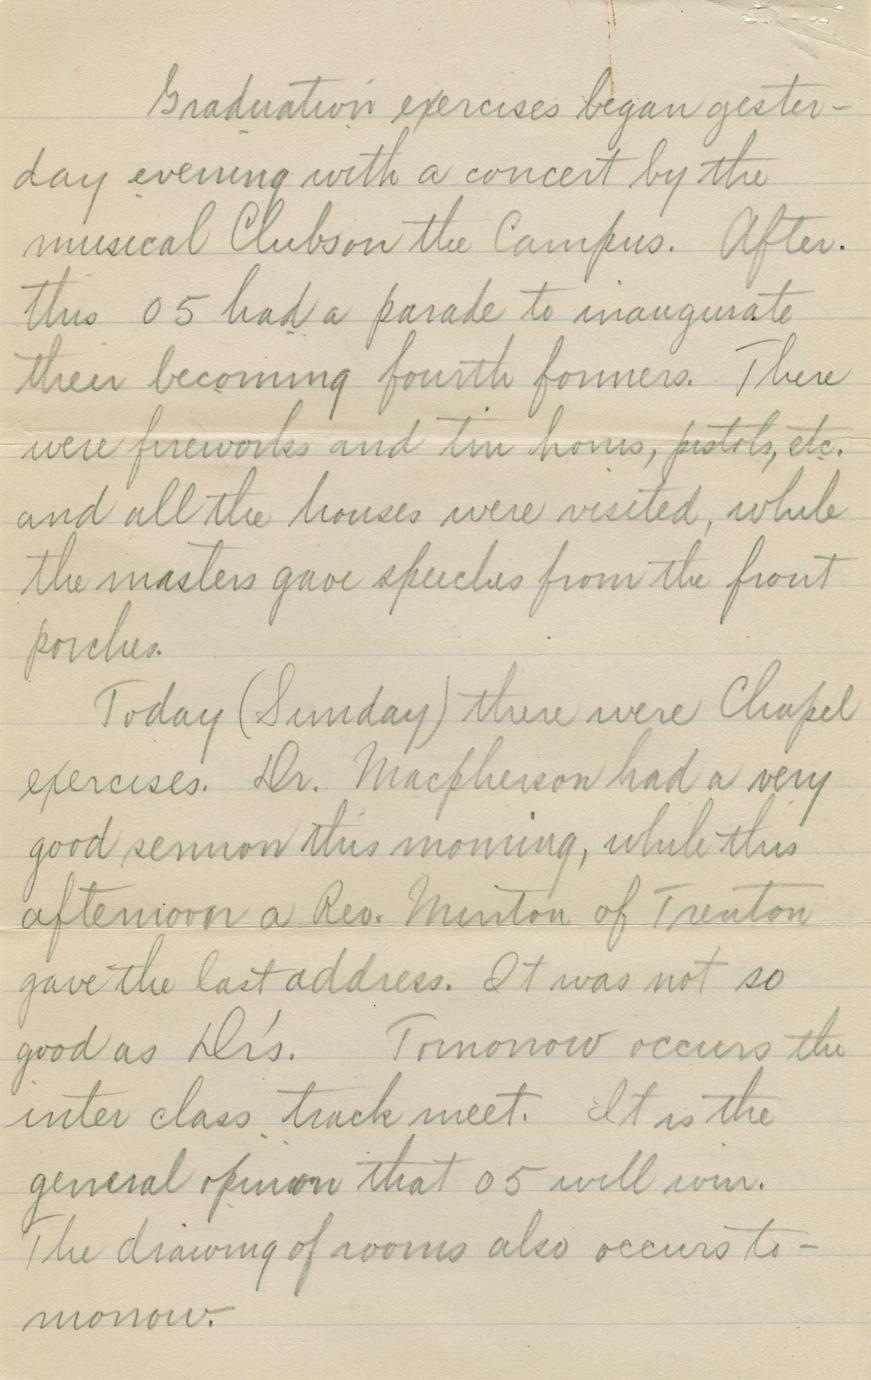 Graduation exercises began yester-
day evening with a concert by the
musical Clubs on the Campus. After
this 05 had a parade to inaugurate
their becoming fourth formers. There
were fireworks and tin horns, pistols, etc.
and all the houses were visited, while
the masters gave speeches from the front
porches.
Today (Sunday) there were Chapel
exercises. Dr. Macpherson had a very
good sermon this morning, while this
afternoon a Rev. Minton of Trenton
gave the last address. It was not so
good as Dr's. Tomorrow occurs the
inter class track meet. It is the
general opinion that 05 will win.
The drawing of rooms also occurs to-
morrow.